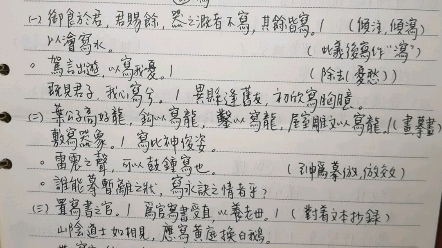 (一) 御食於君,君賜餘,器之溉者不寫,其餘皆寫。1 (傾注,傾瀉)
以澮寫水。 (此義後寫作"瀉")
。駕言出遊,以寫我憂。1 (除去(憂愁))
既見君子,我心寫兮。1 異縣逢舊友,初欣寫胸臆。
(二) 葉公子高好龍,鉤以寫龍,鑿以寫龍,屋室雕文以寫龍。1 (畫,摹畫)
敷寫器象。1 寫此神俊姿。
。雷震之聲,可以鼓鐘寫也。 (引申爲摹倣,倣效)
。誰能摹暫離之狀,寫永訣之情者乎?
(三) 置寫書之官。1 爲官寫書受直,以養老母。1 (對着文本抄錄)
山陰道士如相見,應寫黃庭換白鵝。